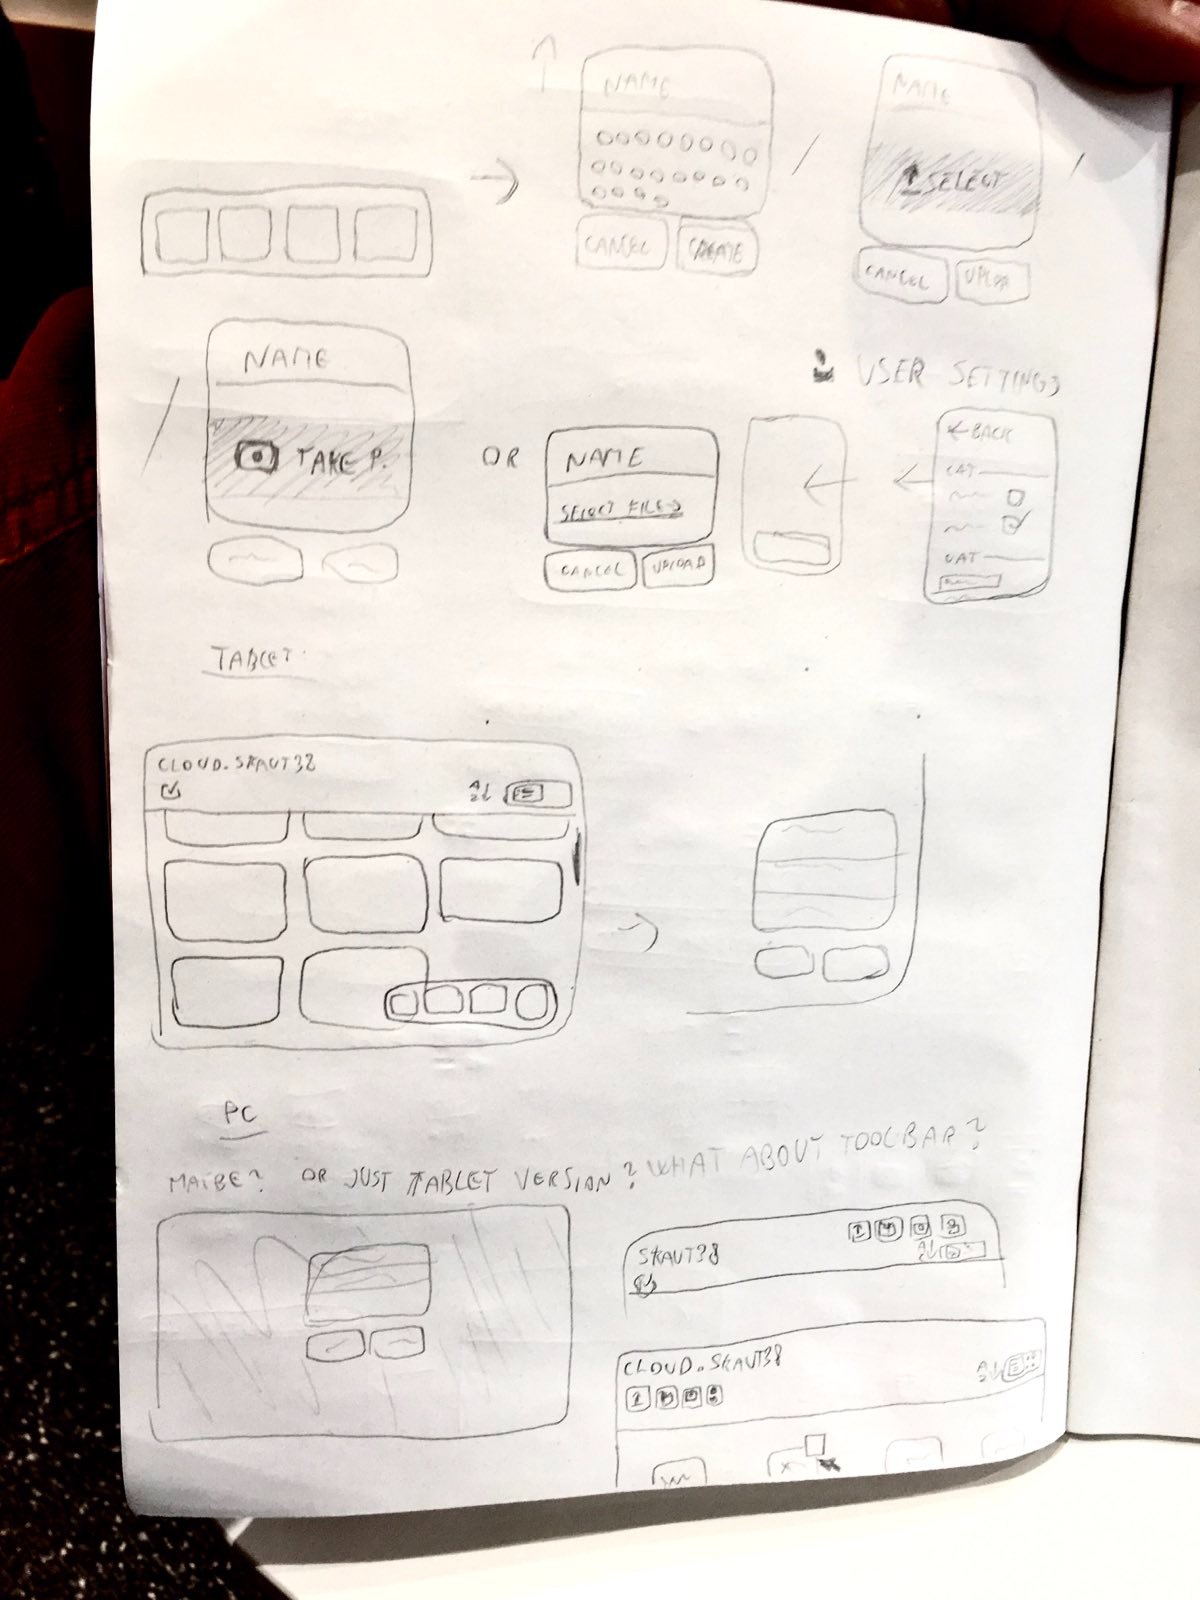 NAME
CANCEL
CREATE
/
NAME
SELECT
CANCEL
/
/
NAME
TAKE P.
OR
NAME
SELECT FILES
CANCEL
UPLOAD
USER SETTINGS
← BACK
CAT
CAT
TABLET
CLOUD.SKAUT38
A
Z↓
PC
MAYBE? OR JUST TABLET VERSION? WHAT ABOUT TOOLBAR?
SKAUT38
CLOUD.SKAUT38
A
Z↓